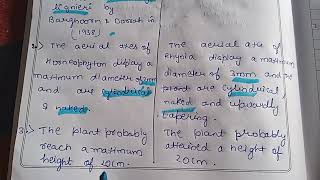 lignieri by
Barghoorn & Darrah in
(1938)
2.) The aerial axes of
Horneophyton display a
maximum diameter of 2mm
and are cylindrical
& naked.
3.) The plant probably
reach a maximum
height of 20cm.
The aerial axes of
rhynia display a maximum
diameter of 3mm and the
are cylindrical
naked and upwardly
tapering.
The plant probably
attained a height of
20cm.